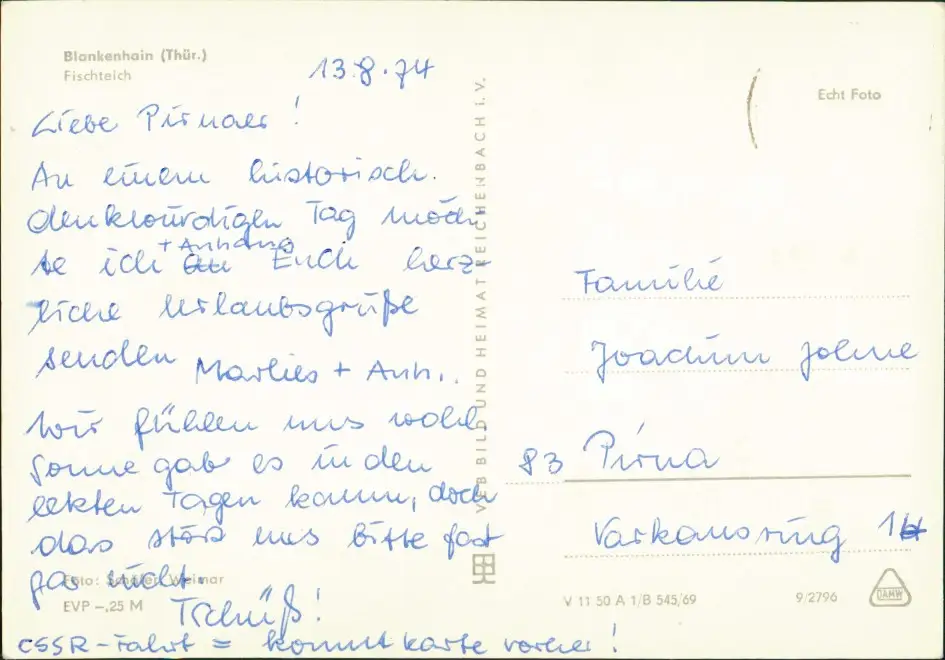 Blankenhain (Thür.)
Fischteich
13.8.74
Liebe Pirnaer!
An einem historisch.
denkwürdigen Tag möch
te ich + Anhang Euch herz-
liche Urlaubsgrüße
senden Marlies + Anh..
Wir fühlen uns wohl
Sonne gab es in den
letzten Tagen kaum, doch
das stört uns bitte fast
gar nicht.
Tschüß!
CSSR-Fahrt = kommt Karte vorher!
Foto: Schäfer, Weimar
EVP -,25 M
VEB BILD UND HEIMAT REICHENBACH I. V.
Echt Foto
Familie
Joachim
83 Pirna
Varkausring
V 11 50 A 1/B 545/69
9/2796
DAMW